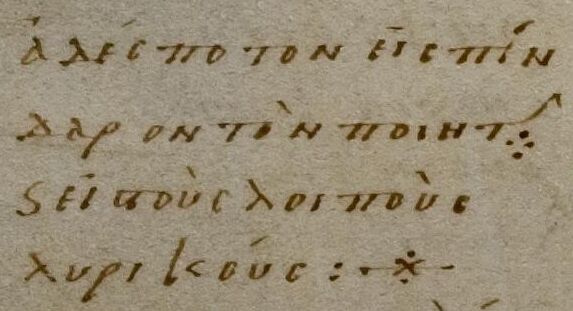 ἀδέσποτον εἰς πίν
δαρον τὸν ποιητ
ϛ εἰς τοὺς λοιποὺς
λυρικούς :